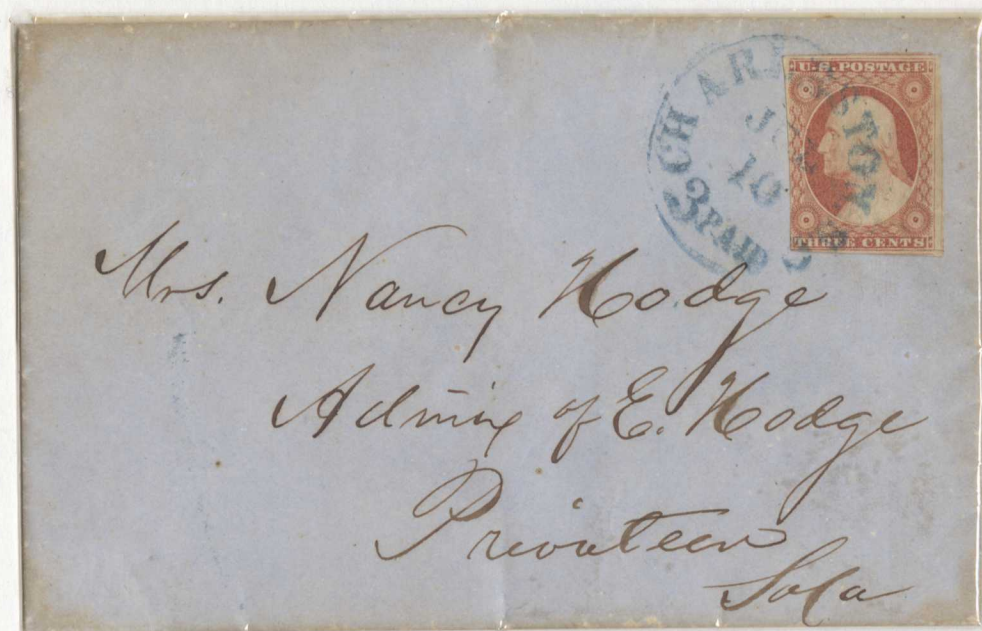 CHARLESTON
JUN
10
3 PAID
U.S. POSTAGE
THREE CENTS
Mrs. Nancy Hodge
Admix of E. Hodge
Privateer
So Ca